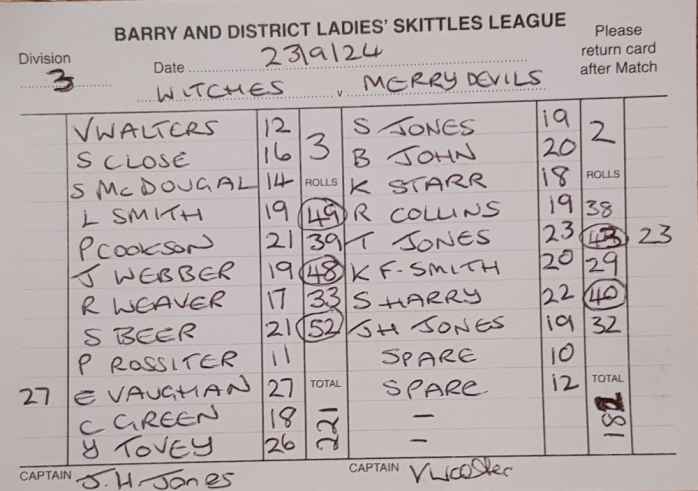 BARRY AND DISTRICT LADIES' SKITTLES LEAGUE
Please return card after Match
Division 3
Date 23/9/24
WITCHES v MERRY DEVILS
V WALTERS 12 3 S JONES 19 2
S CLOSE 16 B JOHN 20
S McDOUGAL 14 ROLLS K STARR 18 ROLLS
L SMITH 19 49 R COLLINS 19 38
P COOKSON 21 39 T JONES 23 43 23
J WEBBER 19 48 K F-SMITH 20 29
R WEAVER 17 33 S HARRY 22 40
S BEER 21 52 JH JONES 19 32
P ROSSITER 11 SPARE 10
27 E VAUGHAN 27 TOTAL SPARE 12 TOTAL
C GREEN 18 221 - 182
Y TOVEY 26 -
CAPTAIN J.H.Jones CAPTAIN